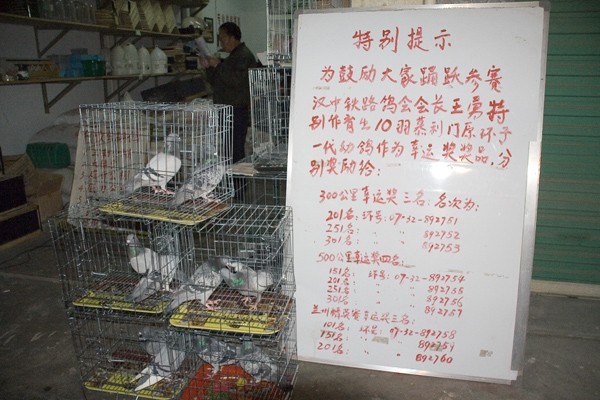 特别提示
为鼓励大家踊跃参赛
汉中铁路鸽会会长王勇特
别作育出10羽慕利门原环子
一代幼鸽作为幸运奖奖品,分
别奖励给:
300公里幸运奖三名:名次为:
201名:环号:07-32-892751
251名 〃 892752
301名 〃 892753
500公里幸运奖四名:
151名: 环号:07-32-892754
201名 〃 〃 892755
251名: 〃 〃 892756
301名: 〃 〃 892757
兰州精英赛幸运奖三名:
101名: 环号:07-32-892758
151名: 〃 〃 892759
201名: 〃 〃 892760